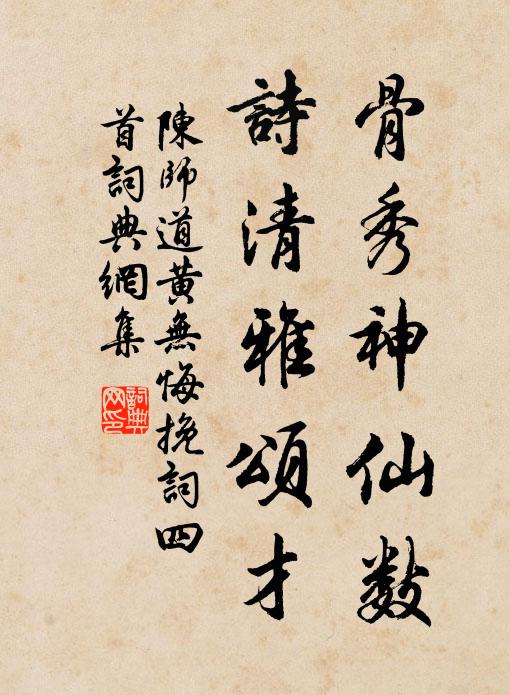 骨秀神仙数
詩清雅頌才
陳師道黃無悔挽詞四
首詞典網集
詞典
网印